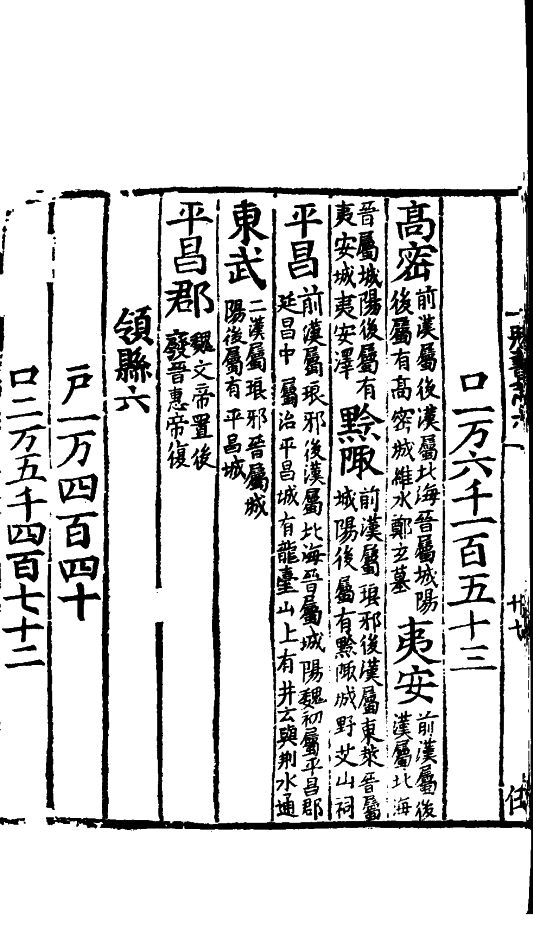 廿七
口一万六千一百五十三
髙密 前漢屬後漢屬北海晉屬城陽
後屬有髙密城維水鄭玄墓
夷安 前漢屬後
漢屬北海
晉屬城陽後屬有
夷安城夷安澤
黔陬 前漢屬琅邪後漢屬東萊晉屬
城陽後屬有黔陬城野艾山祠
平昌 前漢屬琅邪後漢屬北海晉屬城陽魏初屬平昌郡
延昌中屬治平昌城有龍臺山上有井云與荆水通
東武 二漢屬琅邪晉屬城
陽後屬有平昌城
平昌郡 魏文帝置後
廢晉惠帝復
領縣六
戶一万四百四十
口二万五千四百七十二